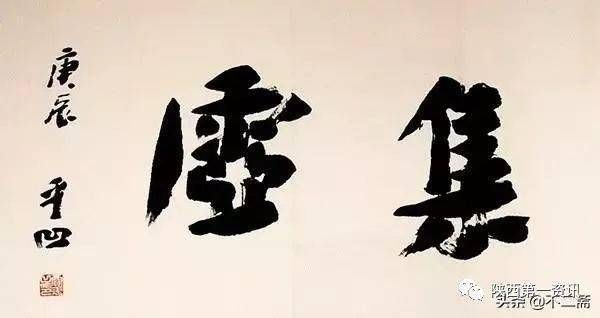 集虛
庚辰
平凹
陕西第一资讯
头条@不二斋